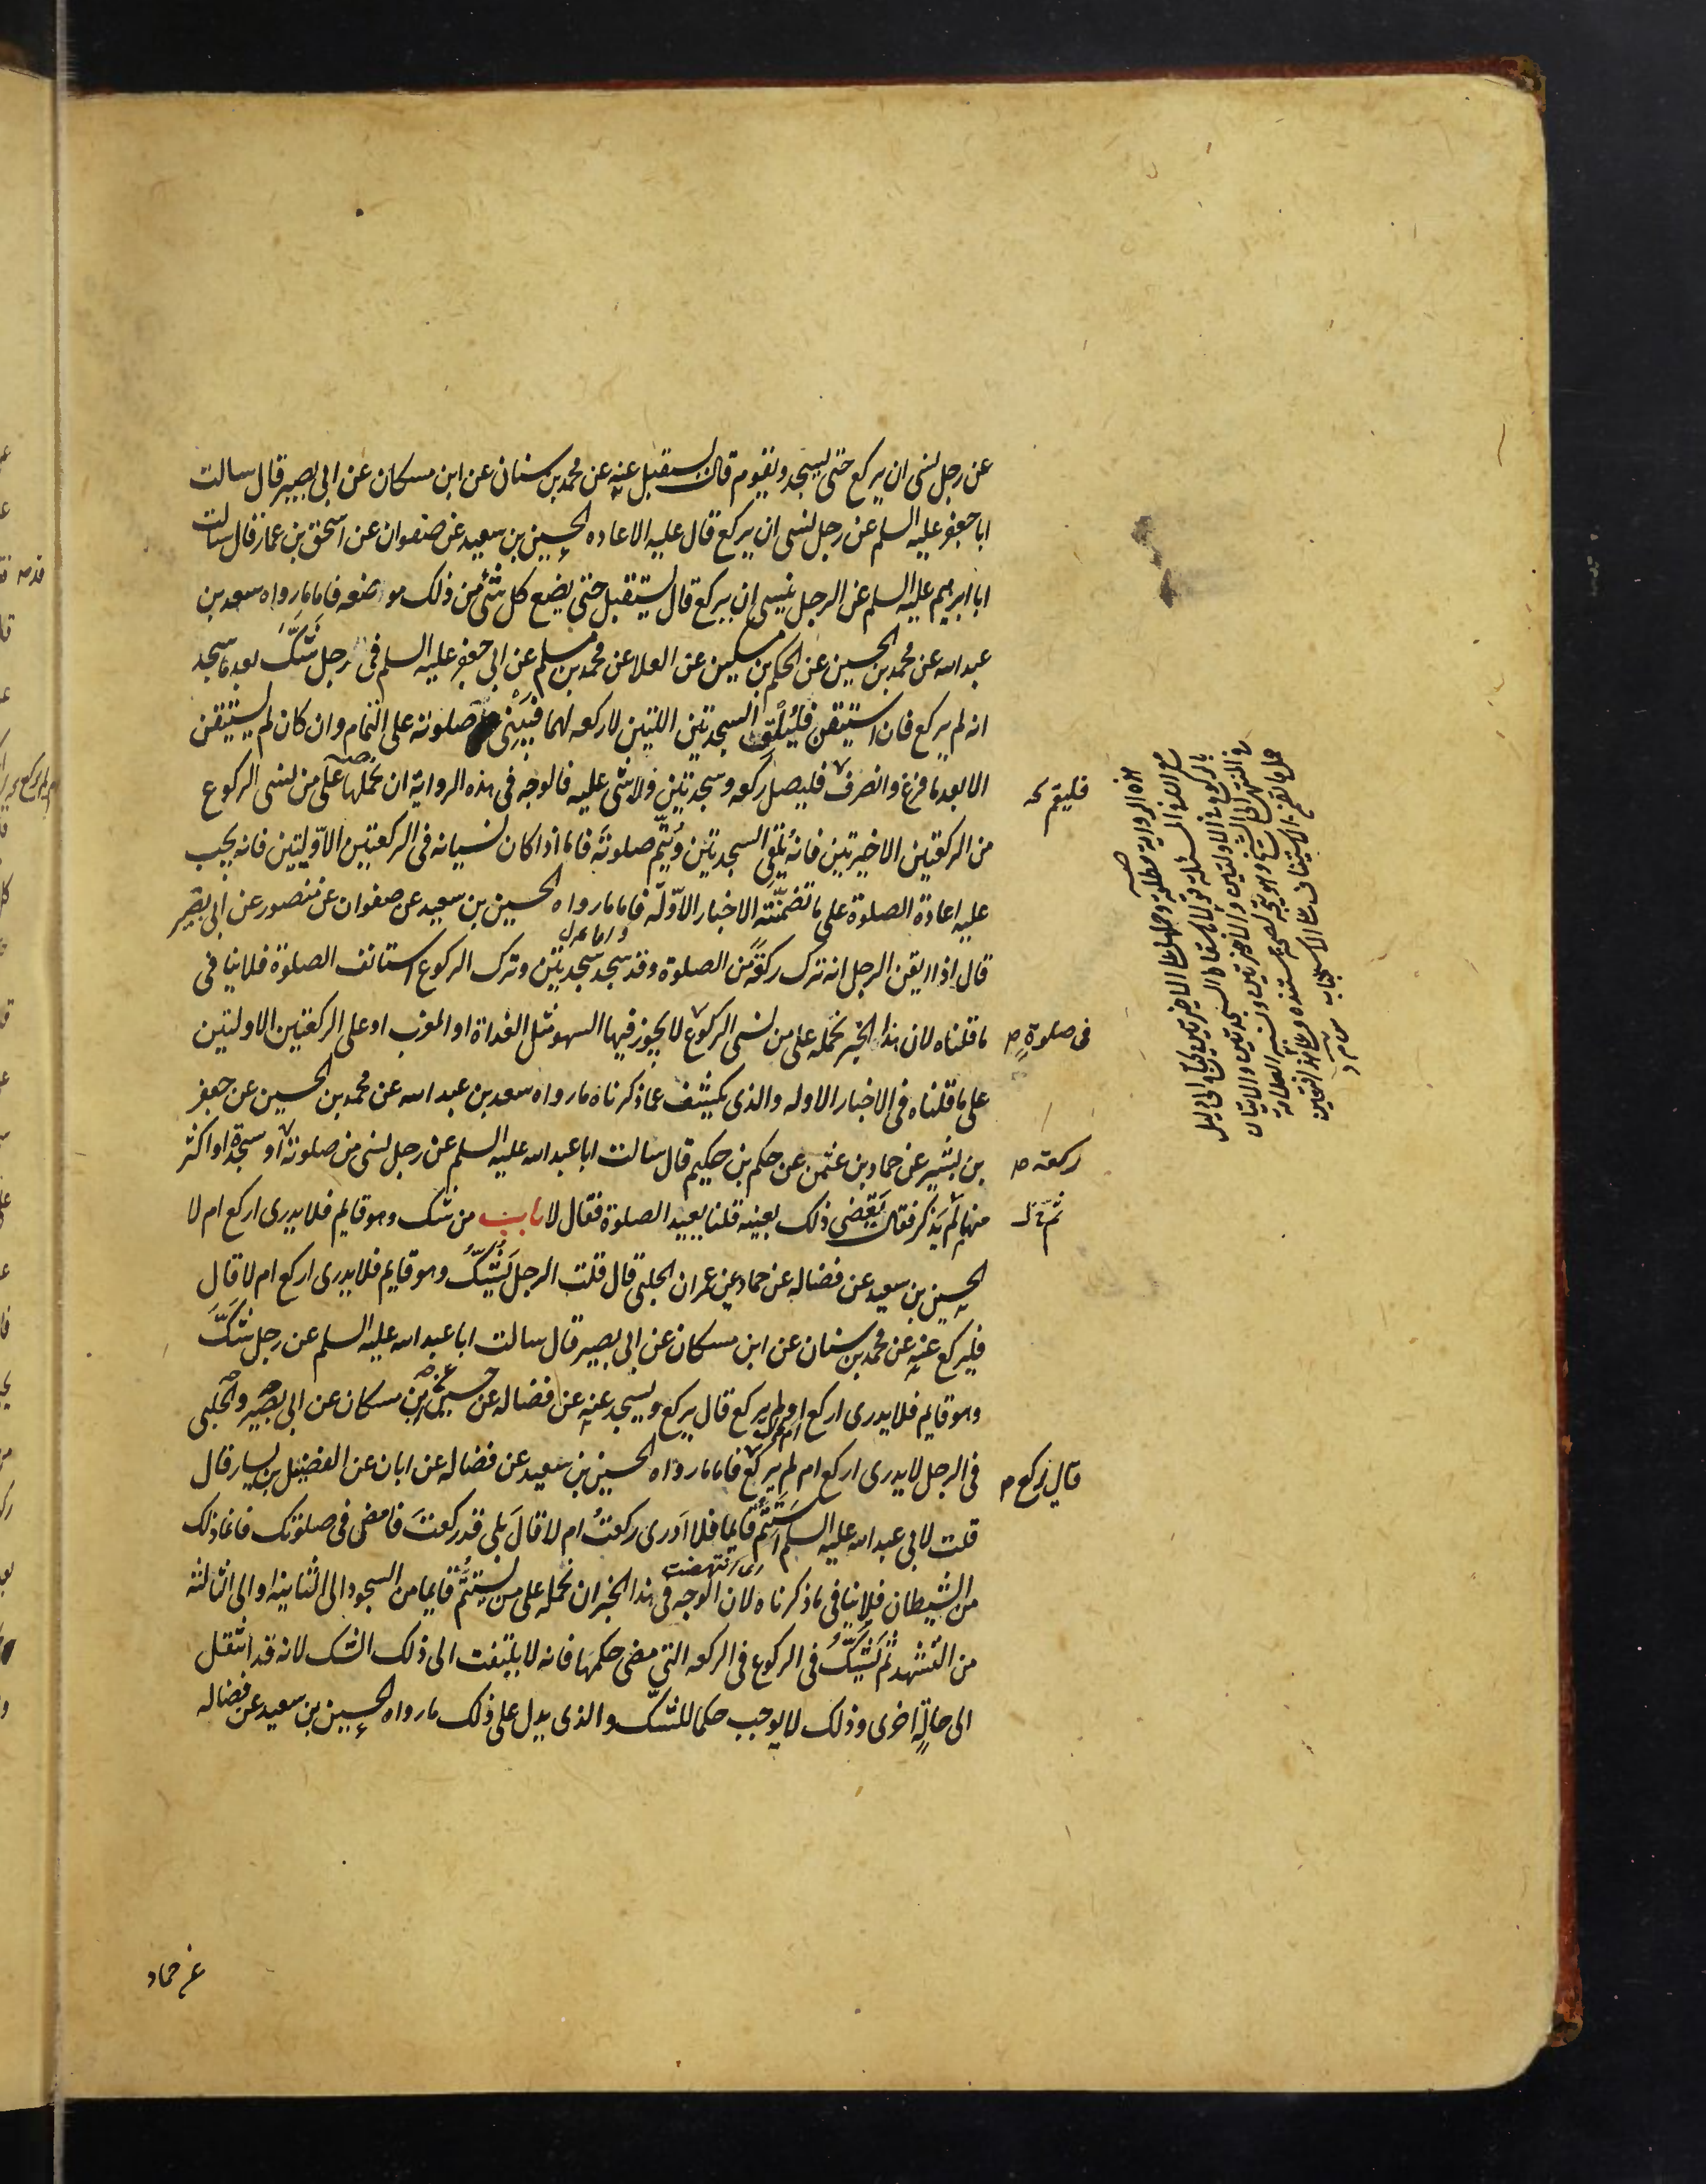 عن رجل نسى ان يركع حتى يسجد ويقوم قال يستقبل عنه عن محمد بن سنان عن ابن مسكان عن ابى بصير قال سالت
ابا جعفر عليه السلم عن رجل نسى ان يركع قال عليه الاعاده الحسين بن سعيد عن صفوان عن اسحق بن عمار قال سالت
ابا ابرهيم عليه السلم عن الرجل ينسى ان يركع قال يستقبل حتى يضع كل شئ من ذلك موضعه فاما مارواه سعد بن
عبد الله عن محمد بن الحسين عن الحكم بن مسكين عن العلا عن محمد بن مسلم عن ابى جعفر عليه السلم فى رجل شَكَّ بعد ما سجد
انه لم يركع فان استيقن فليُلْقِ السجدتين اللتين لا ركعه لهما فيَبْنى صلوته على التمام وان كان لم يستيقن
الا بعد ما فرغ وانصرف فليصل ركعه وسجدتين ولا شى عليه فالوجه فى هذه الرواية ان نحملها على من نسى الركوع
من الركعتين الاخيرتين فانه يُلقى السجدتين ويُتمّ صلوته فاما اذا كان نسيانه فى الركعتين الاوّليتين فانه يجب
عليه اعادة الصلوة على ما تضمّنته الاخبار الاوّلة فاما مارواه الحسين بن سعيد عن صفوان عن منصور عن ابى بصير
قال اذا ايقن الرجل انه ترك ركعةً من الصلوة وقد سجد سجدتين وترك الركوع استانف الصلوة فلا ينافى
ما قلناه لان هذا الخبر نحمله على من نسى الركوع لا يجوز فيها السهو مثل الغداة او المغرب او على الركعتين الاولتين
على ما قلناه فى الاخبار الاوله والذى يكشف عما ذكرناه مارواه سعد بن عبد الله عن محمد بن الحسين عن جعفر
بن بشير عن حماد بن عثمن عن حكم بن حكيم قال سالت ابا عبد الله عليه السلم عن رجل نسى من صلوته او سجدة او اكثر
منها لم يَذكر فقال يَقضى ذلك بعينه قلنا يعيد الصلوة فقال لا باب من شك وهو قايم فلا يدرى اركع ام لا
الحسين بن سعيد عن فضاله عن حماد عن عمران الحلبى قال قلت الرجل يَشُكُّ وهو قايم فلا يدرى اركع ام لا قال
فليركع عنه عن محمد بن سنان عن ابن مسكان عن ابى بصير قال سالت ابا عبد الله عليه السلم عن رجل شَكَّ
وهو قايم فلا يدرى اركع ام لم يركع قال يركع ويسجد عنه عن فضاله عن حسين عن ابن مسكان عن ابى بصير والحلبى
فى الرجل لا يدرى اركع ام لم يركع فاما مارواه الحسين بن سعيد عن فضاله عن ابان عن الفضيل بن يسار قال
قلت لابى عبد الله عليه السلم استَتَمُّ قايما فلا ادرى ركعتُ ام لا قالَ بلى قد ركعتَ فامضِ فى صلوتك فانما ذلك
من الشيطان فلا ينافى ما ذكرناه لان الوجه فى هذا الخبر ان نحمله على من يستتمُّ قايما من السجود الى الثانيه او الى الثالثه
من التشهد ثم يَشُكُّ فى الركوع فى الركعه التى مضى حكمها فانه لا يلتفت الى ذلك الشك لانه قد انتقل
الى حالةٍ اخرى وذلك لا يوجب حكما للشّك والذى يدل على ذلك مارواه الحسين بن سعيد عن فضاله
فليقم
فى صلوةٍ
ركعة
ثم
قال يركع
عن حماد